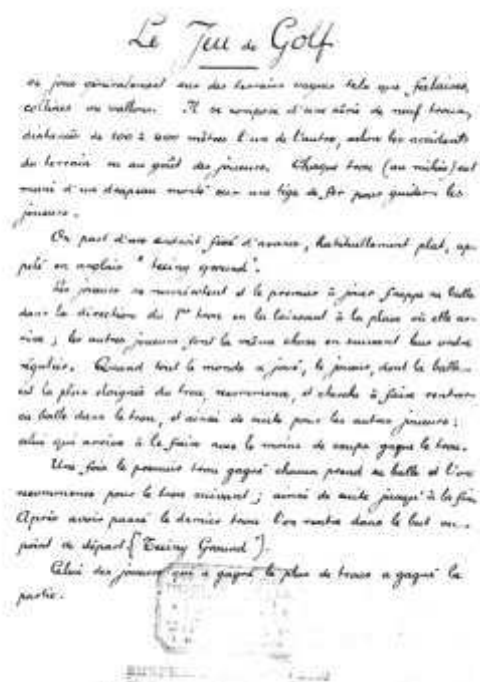 Le Jeu de Golf
se joue généralement sur des terrains vagues tels que, falaises,
collines ou vallons. Il se compose d'une série de neuf trous,
distancés de 100 à 400 mètres l'un de l'autre, selon les accidents
du terrain ou au goût des joueurs. Chaque trou (au milieu) est
muni d'un drapeau monté sur une tige de fer pour guider les
joueurs.
On part d'un endroit fixé d'avance, habituellement plat, ap-
pelé en anglais "teeing ground".
Les joueurs se numérotent et le premier à jouer frappe sa balle
dans la direction du 1er trou en la laissant à la place où elle ar-
rive ; les autres joueurs font la même chose en suivant leur ordre
régulier. Quand tout le monde a joué, le joueur, dont la balle
est la plus éloignée du trou, recommence, et cherche à faire rentrer
sa balle dans le trou, et ainsi de suite pour les autres joueurs ;
celui qui arrive à le faire avec le moins de coups gagne le trou.
Une fois le premier trou gagné chacun prend sa balle et l'on
recommence pour le trou suivant ; ainsi de suite jusqu'à la fin.
Après avoir passé le dernier trou l'on rentre dans le but ou
point de départ ("Teeing Ground").
Celui des joueurs qui a gagné le plus de trous a gagné la
partie.